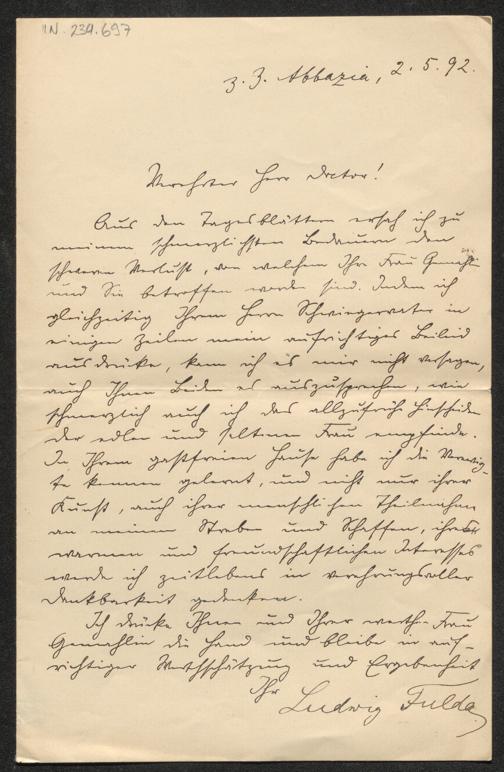 IN. 234.697
z. Z. Abbazia, 2. 5. 92.
Verehrter Herr Doctor!
Aus den Tagesblättern ersah ich zu
meinem schmerzlichsten Bedauern den
schweren Verlust, von welchem Ihre Frau Gemahlin
und Sie betroffen worden sind. Indem ich
gleichzeitig Ihrem Herrn Schwiegervater in
einigen Zeilen mein aufrichtiges Beileid
ausdrücke, kann ich es mir nicht versagen,
auch Ihnen Beiden es auszusprechen, wie
schmerzlich auch ich das allzufrühe Hinscheiden
der edlen und seltenen Frau empfinde.
In Ihrem gastfreien Hause habe ich die Verewig-
te kennen gelernt, und nicht nur ihrer
Kunst, auch ihrer menschlichen Theilnahme
an meinem Streben und Schaffen, ihres
warmen und freundschaftlichen Interesses
werde ich zeitlebens in verehrungsvoller
Dankbarkeit gedenken.
Ich drücke Ihnen und Ihrer werthen Frau
Gemahlin die Hand und bleibe in auf-
richtiger Werthschätzung und Ergebenheit
Ihr
Ludwig Fulda